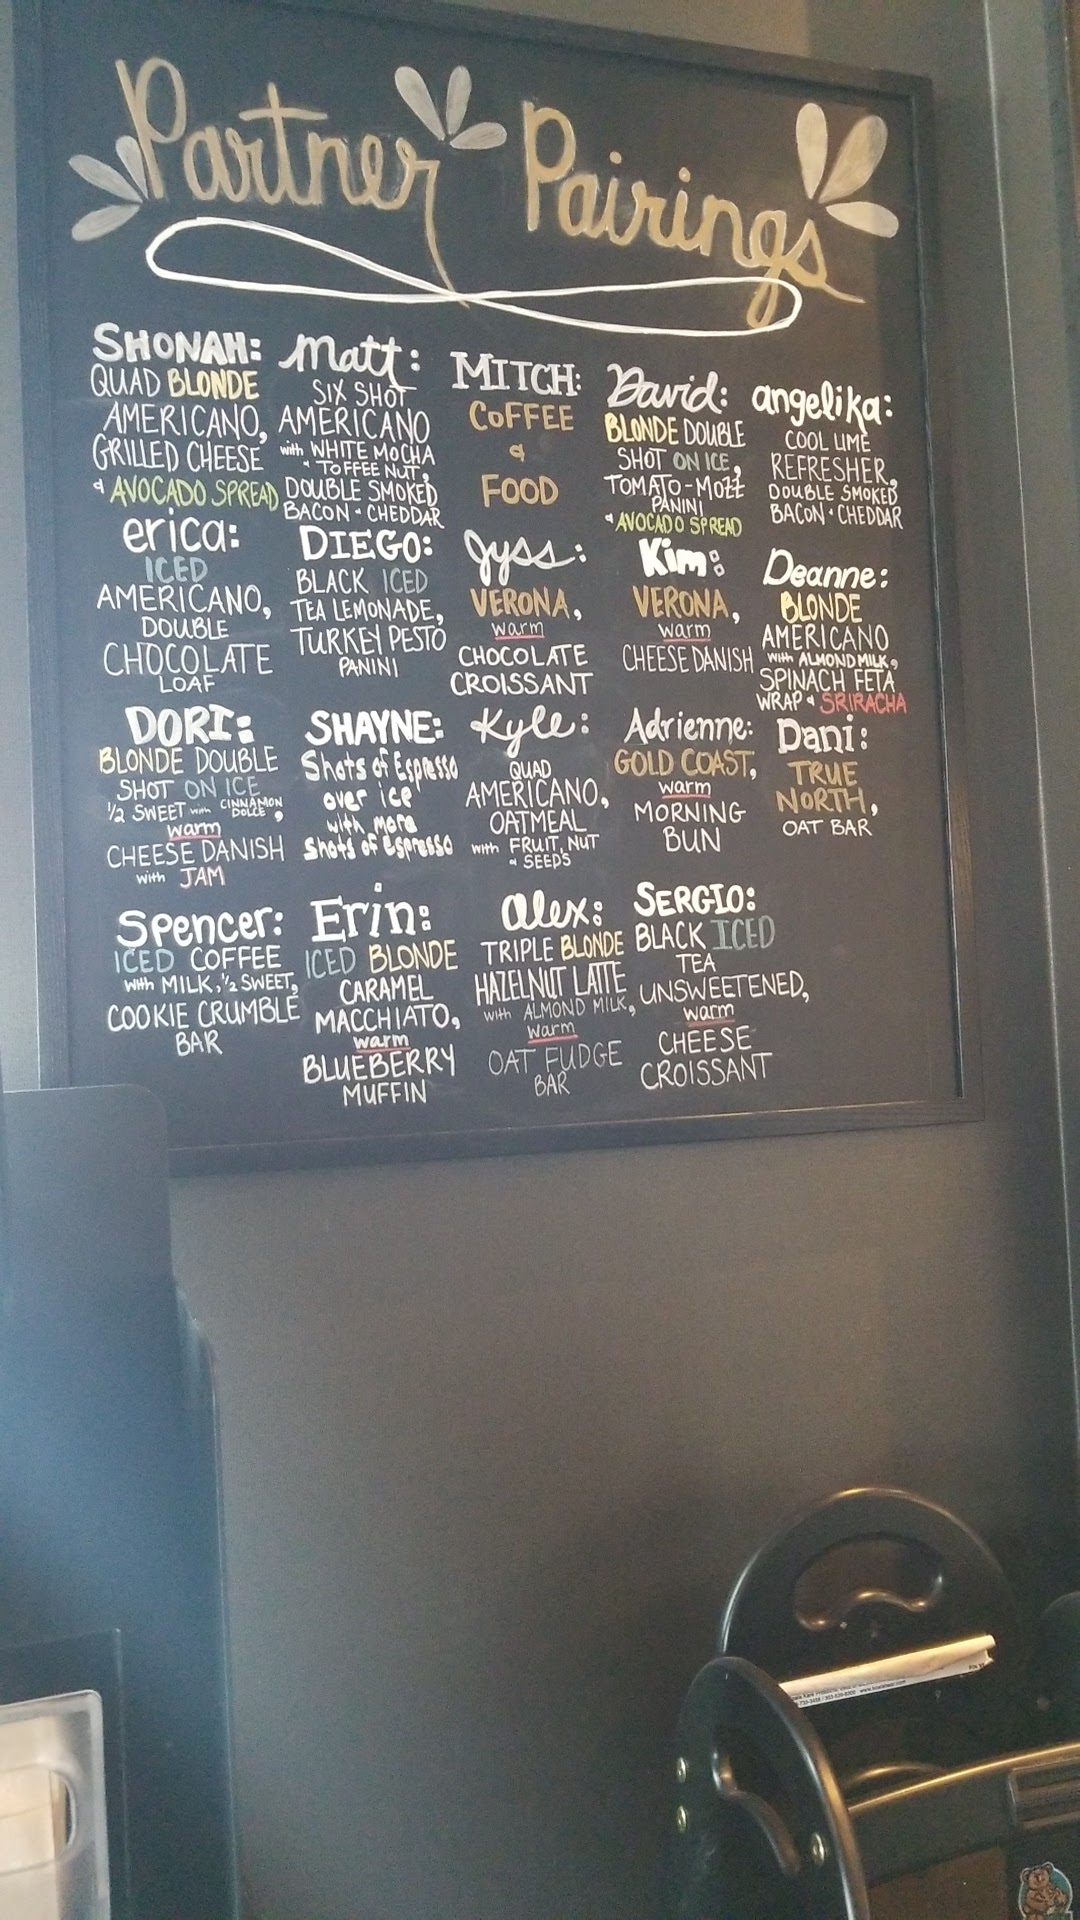 Partner Pairings
SHONAH:
QUAD BLONDE
AMERICANO,
GRILLED CHEESE
& AVOCADO SPREAD
Matt:
SIX SHOT
AMERICANO
with WHITE MOCHA
& TOFFEE NUT,
DOUBLE SMOKED
BACON & CHEDDAR
MITCH:
COFFEE
&
FOOD
David:
BLONDE DOUBLE
SHOT ON ICE,
TOMATO-MOZZ
PANINI
& AVOCADO SPREAD
angelika:
COOL LIME
REFRESHER,
DOUBLE SMOKED
BACON & CHEDDAR
erica:
ICED
AMERICANO,
DOUBLE
CHOCOLATE
LOAF
DIEGO:
BLACK ICED
TEA LEMONADE,
TURKEY PESTO
PANINI
Jyss:
VERONA,
warm
CHOCOLATE
CROISSANT
Kim:
VERONA,
warm
CHEESE DANISH
Deanne:
BLONDE
AMERICANO
with ALMOND MILK,
SPINACH FETA
WRAP & SRIRACHA
DORI:
BLONDE DOUBLE
SHOT ON ICE
1/2 SWEET with CINNAMON
DOLCE,
warm
CHEESE DANISH
with JAM
SHAYNE:
Shots of Espresso
over ice
with more
Shots of Espresso
Kyle:
QUAD
AMERICANO,
OATMEAL
with FRUIT, NUT
& SEEDS
Adrienne:
GOLD COAST,
warm
MORNING
BUN
Dani:
TRUE
NORTH,
OAT BAR
Spencer:
ICED COFFEE
with MILK, 1/2 SWEET,
COOKIE CRUMBLE
BAR
Erin:
ICED BLONDE
CARAMEL
MACCHIATO,
warm
BLUEBERRY
MUFFIN
alex:
TRIPLE BLONDE
HAZELNUT LATTE
with ALMOND MILK,
warm
OAT FUDGE
BAR
SERGIO:
BLACK ICED
TEA
UNSWEETENED,
warm
CHEESE
CROISSANT